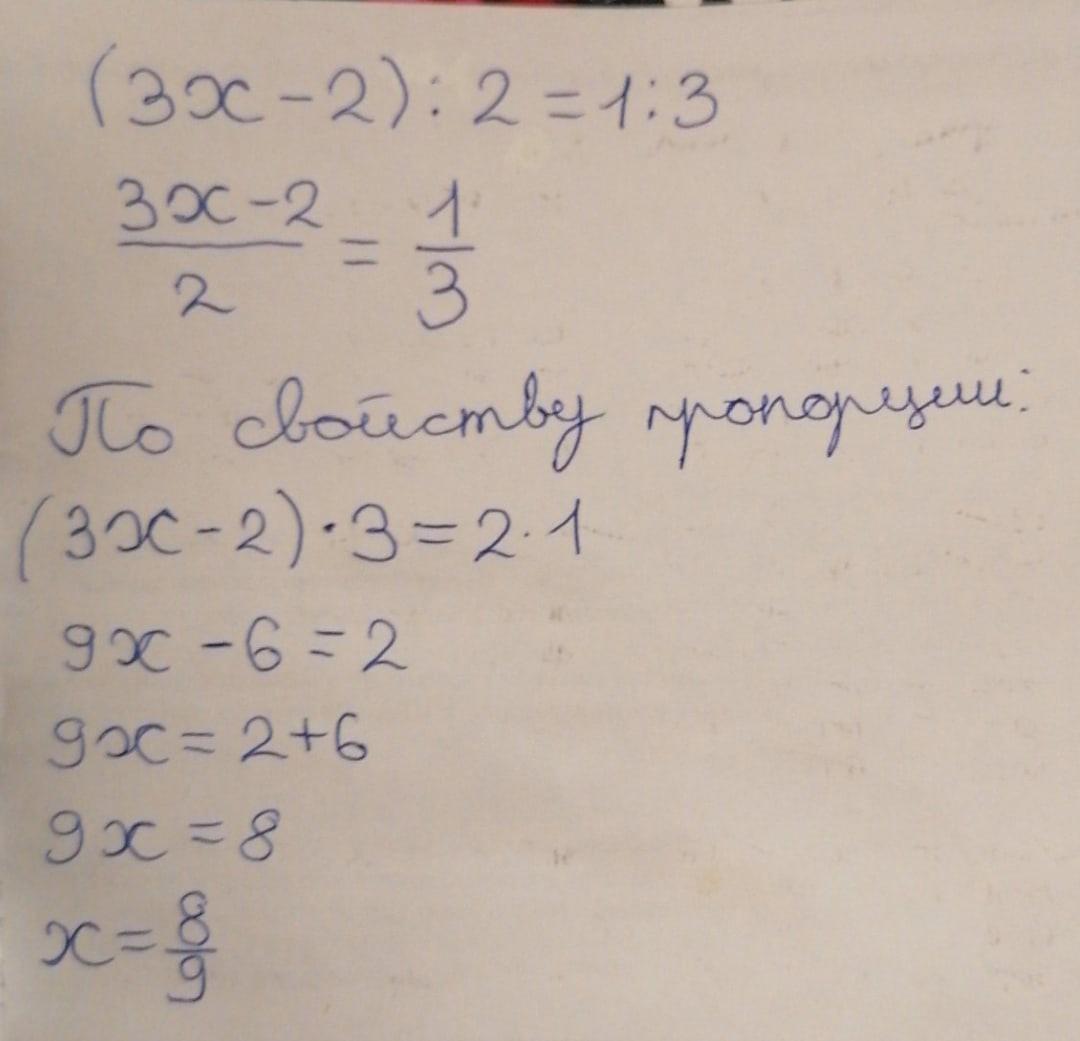 (3x-2):2=1:3
3x-2/2 = 1/3
По свойству пропорции:
(3x-2)·3=2·1
9x-6=2
9x=2+6
9x=8
x=8/9